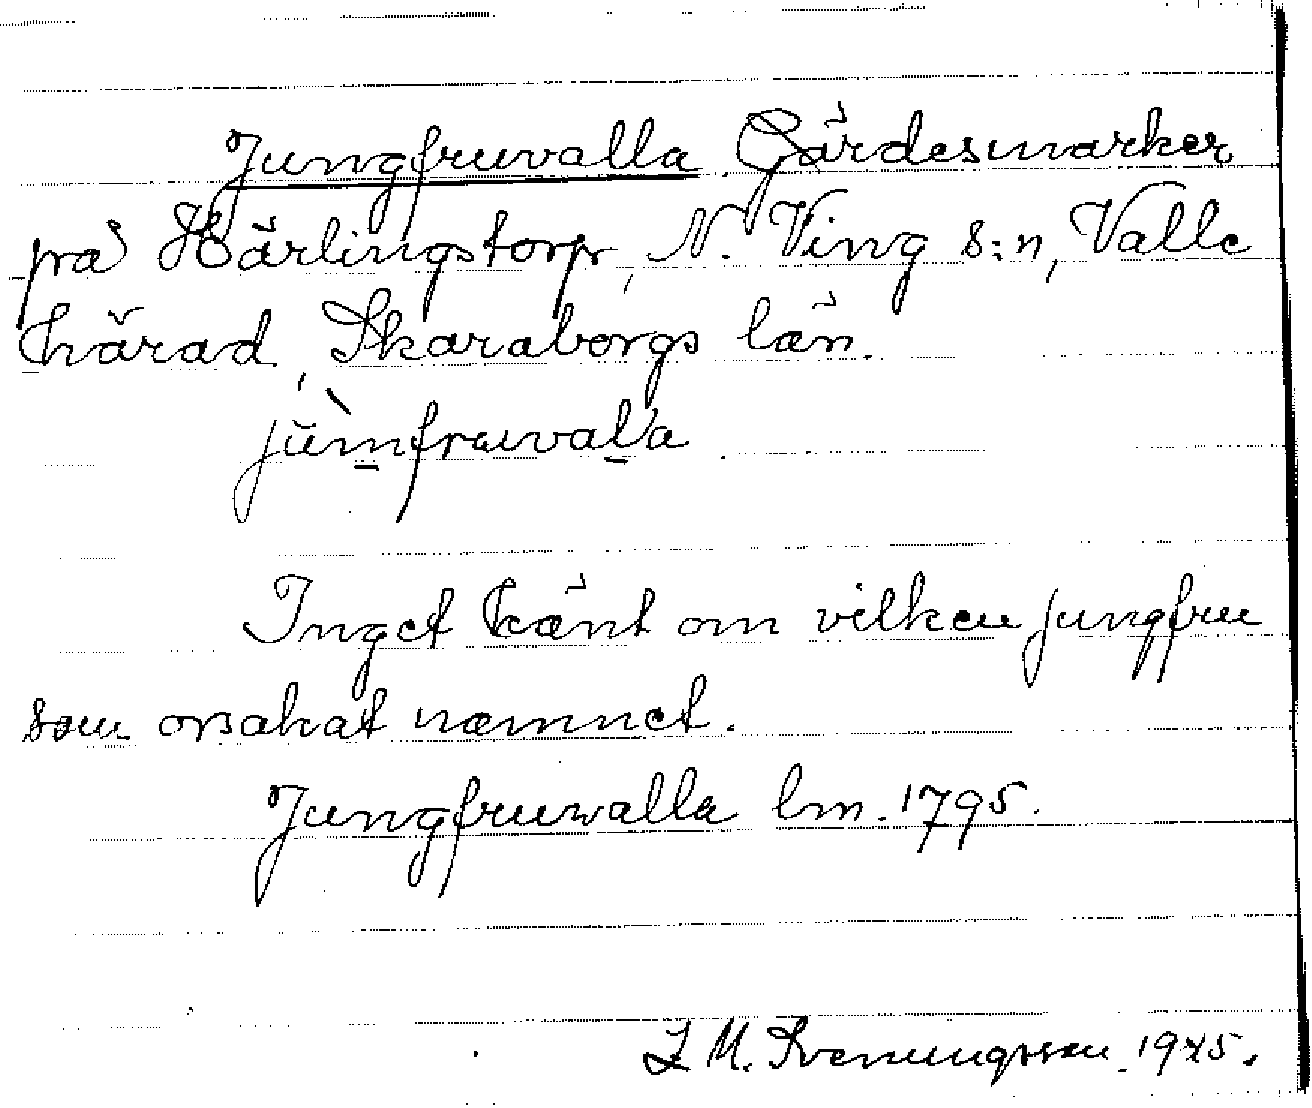 Jungfruvalla Gärdesmarker
på Härlingstorp, N. Ving s:n, Valle
härad, Skaraborgs län.
jùmfruvala
Inget känt om vilken jungfru
som orsakat namnet.
Jungfruwalla lm. 1795.
M. Svenungsson 1945.